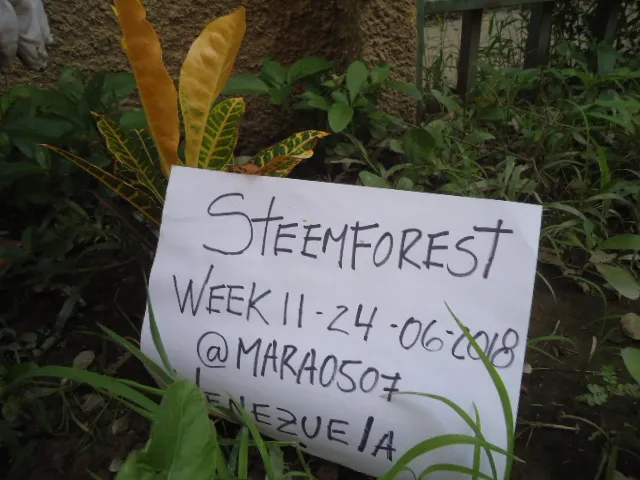 STEEMFOREST
WEEK 11-24-06-2018
@MARA0507
VENEZUElA